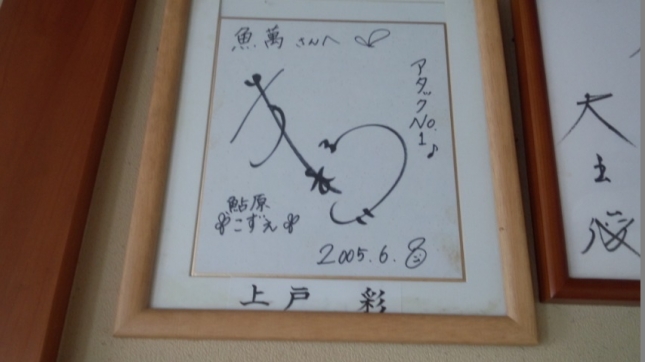 魚萬さんへ
アタックNo.1♪
鮎原
こずえ
2005.6.8
上戸 彩
天
主